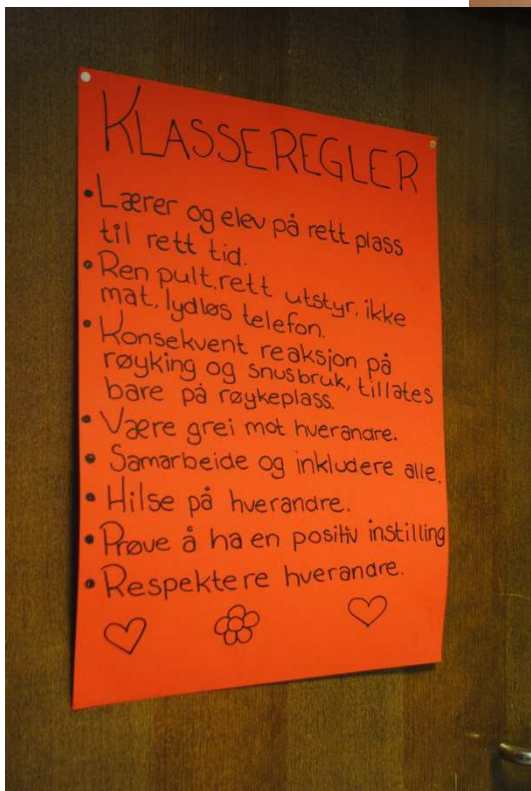 KLASSEREGLER
• Lærer og elev på rett plass
til rett tid.
• Ren pult, rett utstyr, ikke
mat, lydløs telefon.
• Konsekvent reaksjon på
røyking og snusbruk, tillates
bare på røykeplass.
• Være grei mot hverandre.
• Samarbeide og inkludere alle.
• Hilse på hverandre.
• Prøve å ha en positiv instilling
• Respektere hverandre.